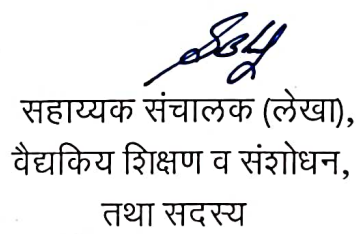 सहाय्यक संचालक (लेखा),
वैद्यकिय शिक्षण व संशोधन,
तथा सदस्य